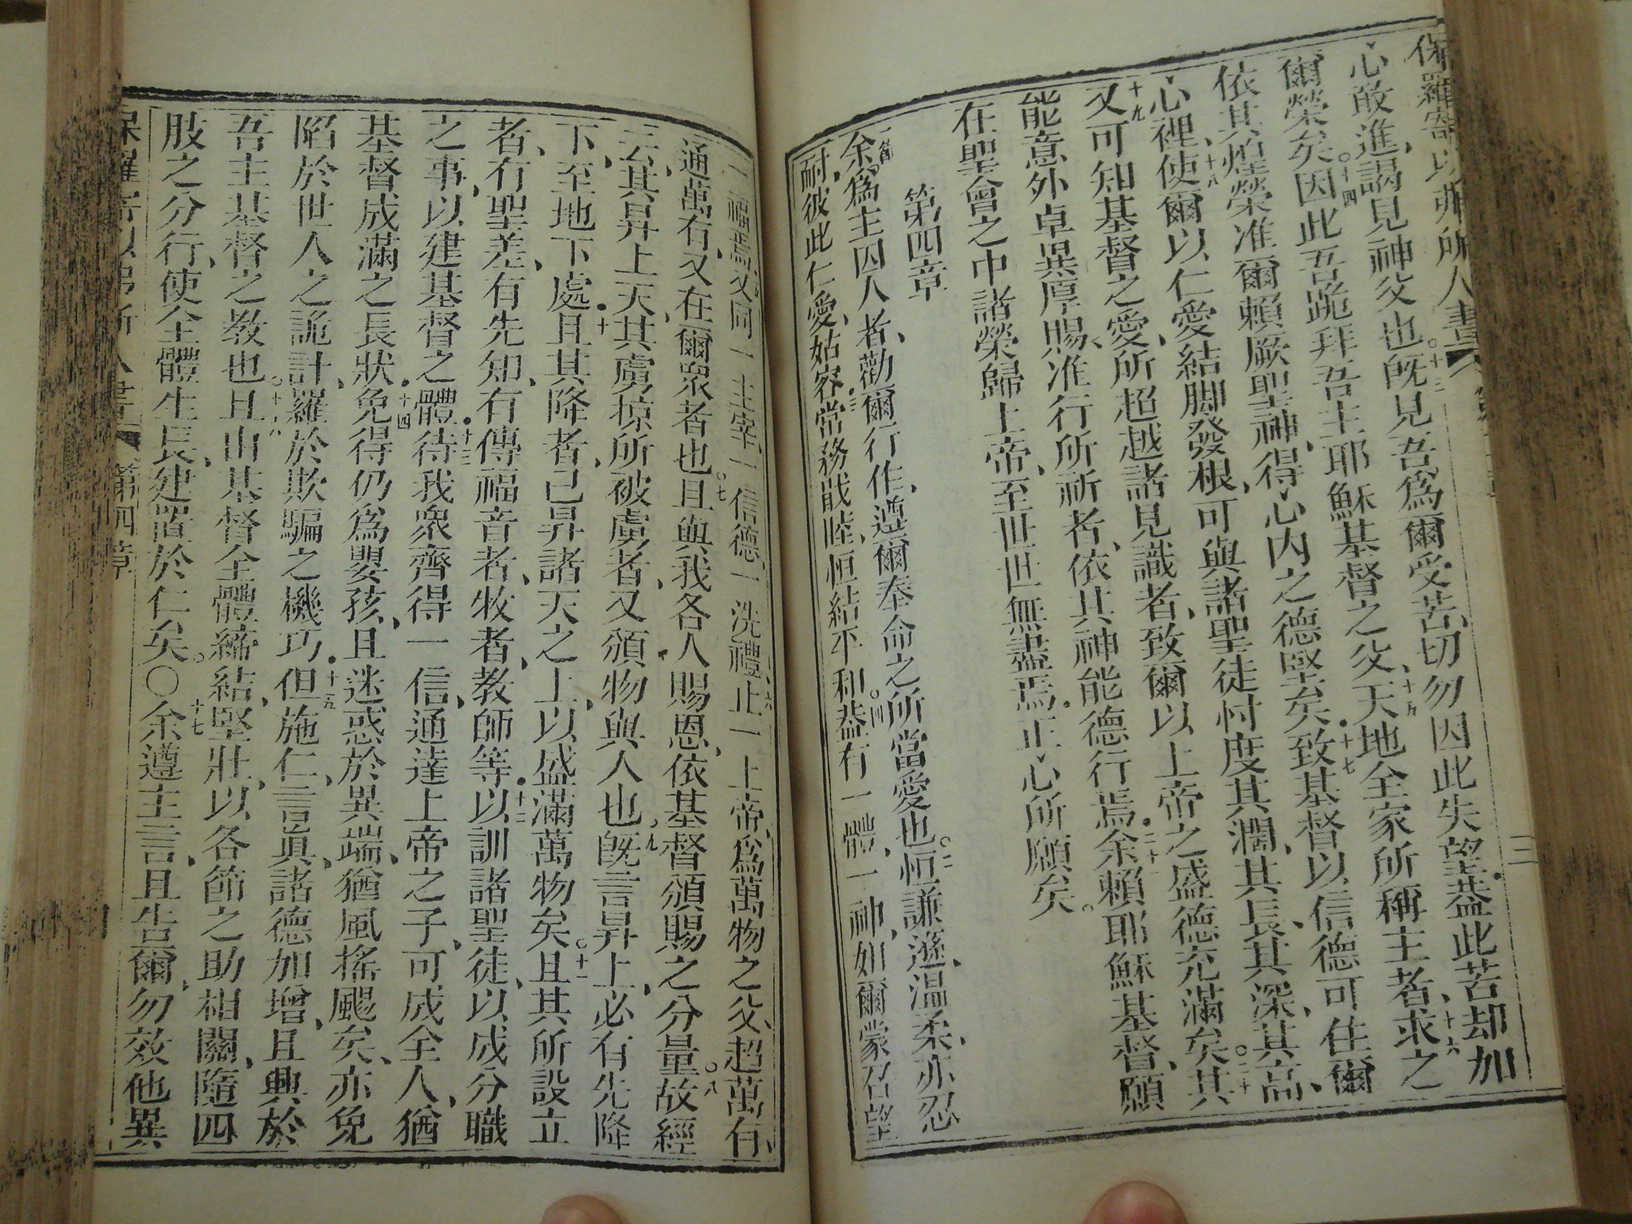 保羅寄以弗所人書
心敢進謁見神父也。十三既見吾為爾受苦、切勿因此失望、葢此苦却加
爾榮矣。十四因此吾跪拜吾主耶穌基督之父、十五天地全家所稱主者、十六求之
依其煌榮准爾賴厥聖神、得心內之德堅矣、十七致基督以信德可住爾
心裡、十八使爾以仁愛結脚發根、可與諸聖徒忖度其濶、其長、其深、其高、
十九又可知基督之愛、所超越諸見識者、致爾以上帝之盛德充滿矣。二十其
能意外卓異厚賜、准行所祈者、依其神能德行焉、二十一余賴耶穌基督、願
在聖會之中諸榮歸上帝、至世世無盡焉、正心所願矣。
第四章
余為主囚人者、勸爾行作、遵爾奉命之所當愛也。二恒謙遜、溫柔、亦忍
耐、彼此仁愛、姑容、三常務戢睦、恒結平和。四葢有一體、一神、如爾蒙召望
一福焉、五又同一主宰、一信德、一洗禮、六止一上帝、為萬物之父、超萬有、
通萬有、又在爾衆者也。七且與我各人賜恩、依基督頒賜之分量。八故經
云、其昇上天、其虜掠所被虜者、又頒物與人也。九旣言昇上、必有先降
下、至地下處、十且其降者、己昇諸天之上、以盛滿萬物矣。十一且其所設立
者、有聖差、有先知、有傳福音者、牧者、教師等、十二以訓諸聖徒、以成分職
之事、以建基督之體、十三待我衆齊得一信、通達上帝之子、可成全人、猶
基督成滿之長狀、十四免得仍為嬰孩、且迷惑於異端、猶風搖颺矣、亦免
陷於世人之詭計、羅於欺騙之機巧、十五但施仁、言眞、諸德加增、且興於
吾主基督之教也。十六且由基督全體締結、堅壯、以各節之助相關、隨四
肢之分行、使全體生長、建置於仁矣。〇十七余遵主言、且告爾、勿效他異
保羅寄以弗所人書 第四章